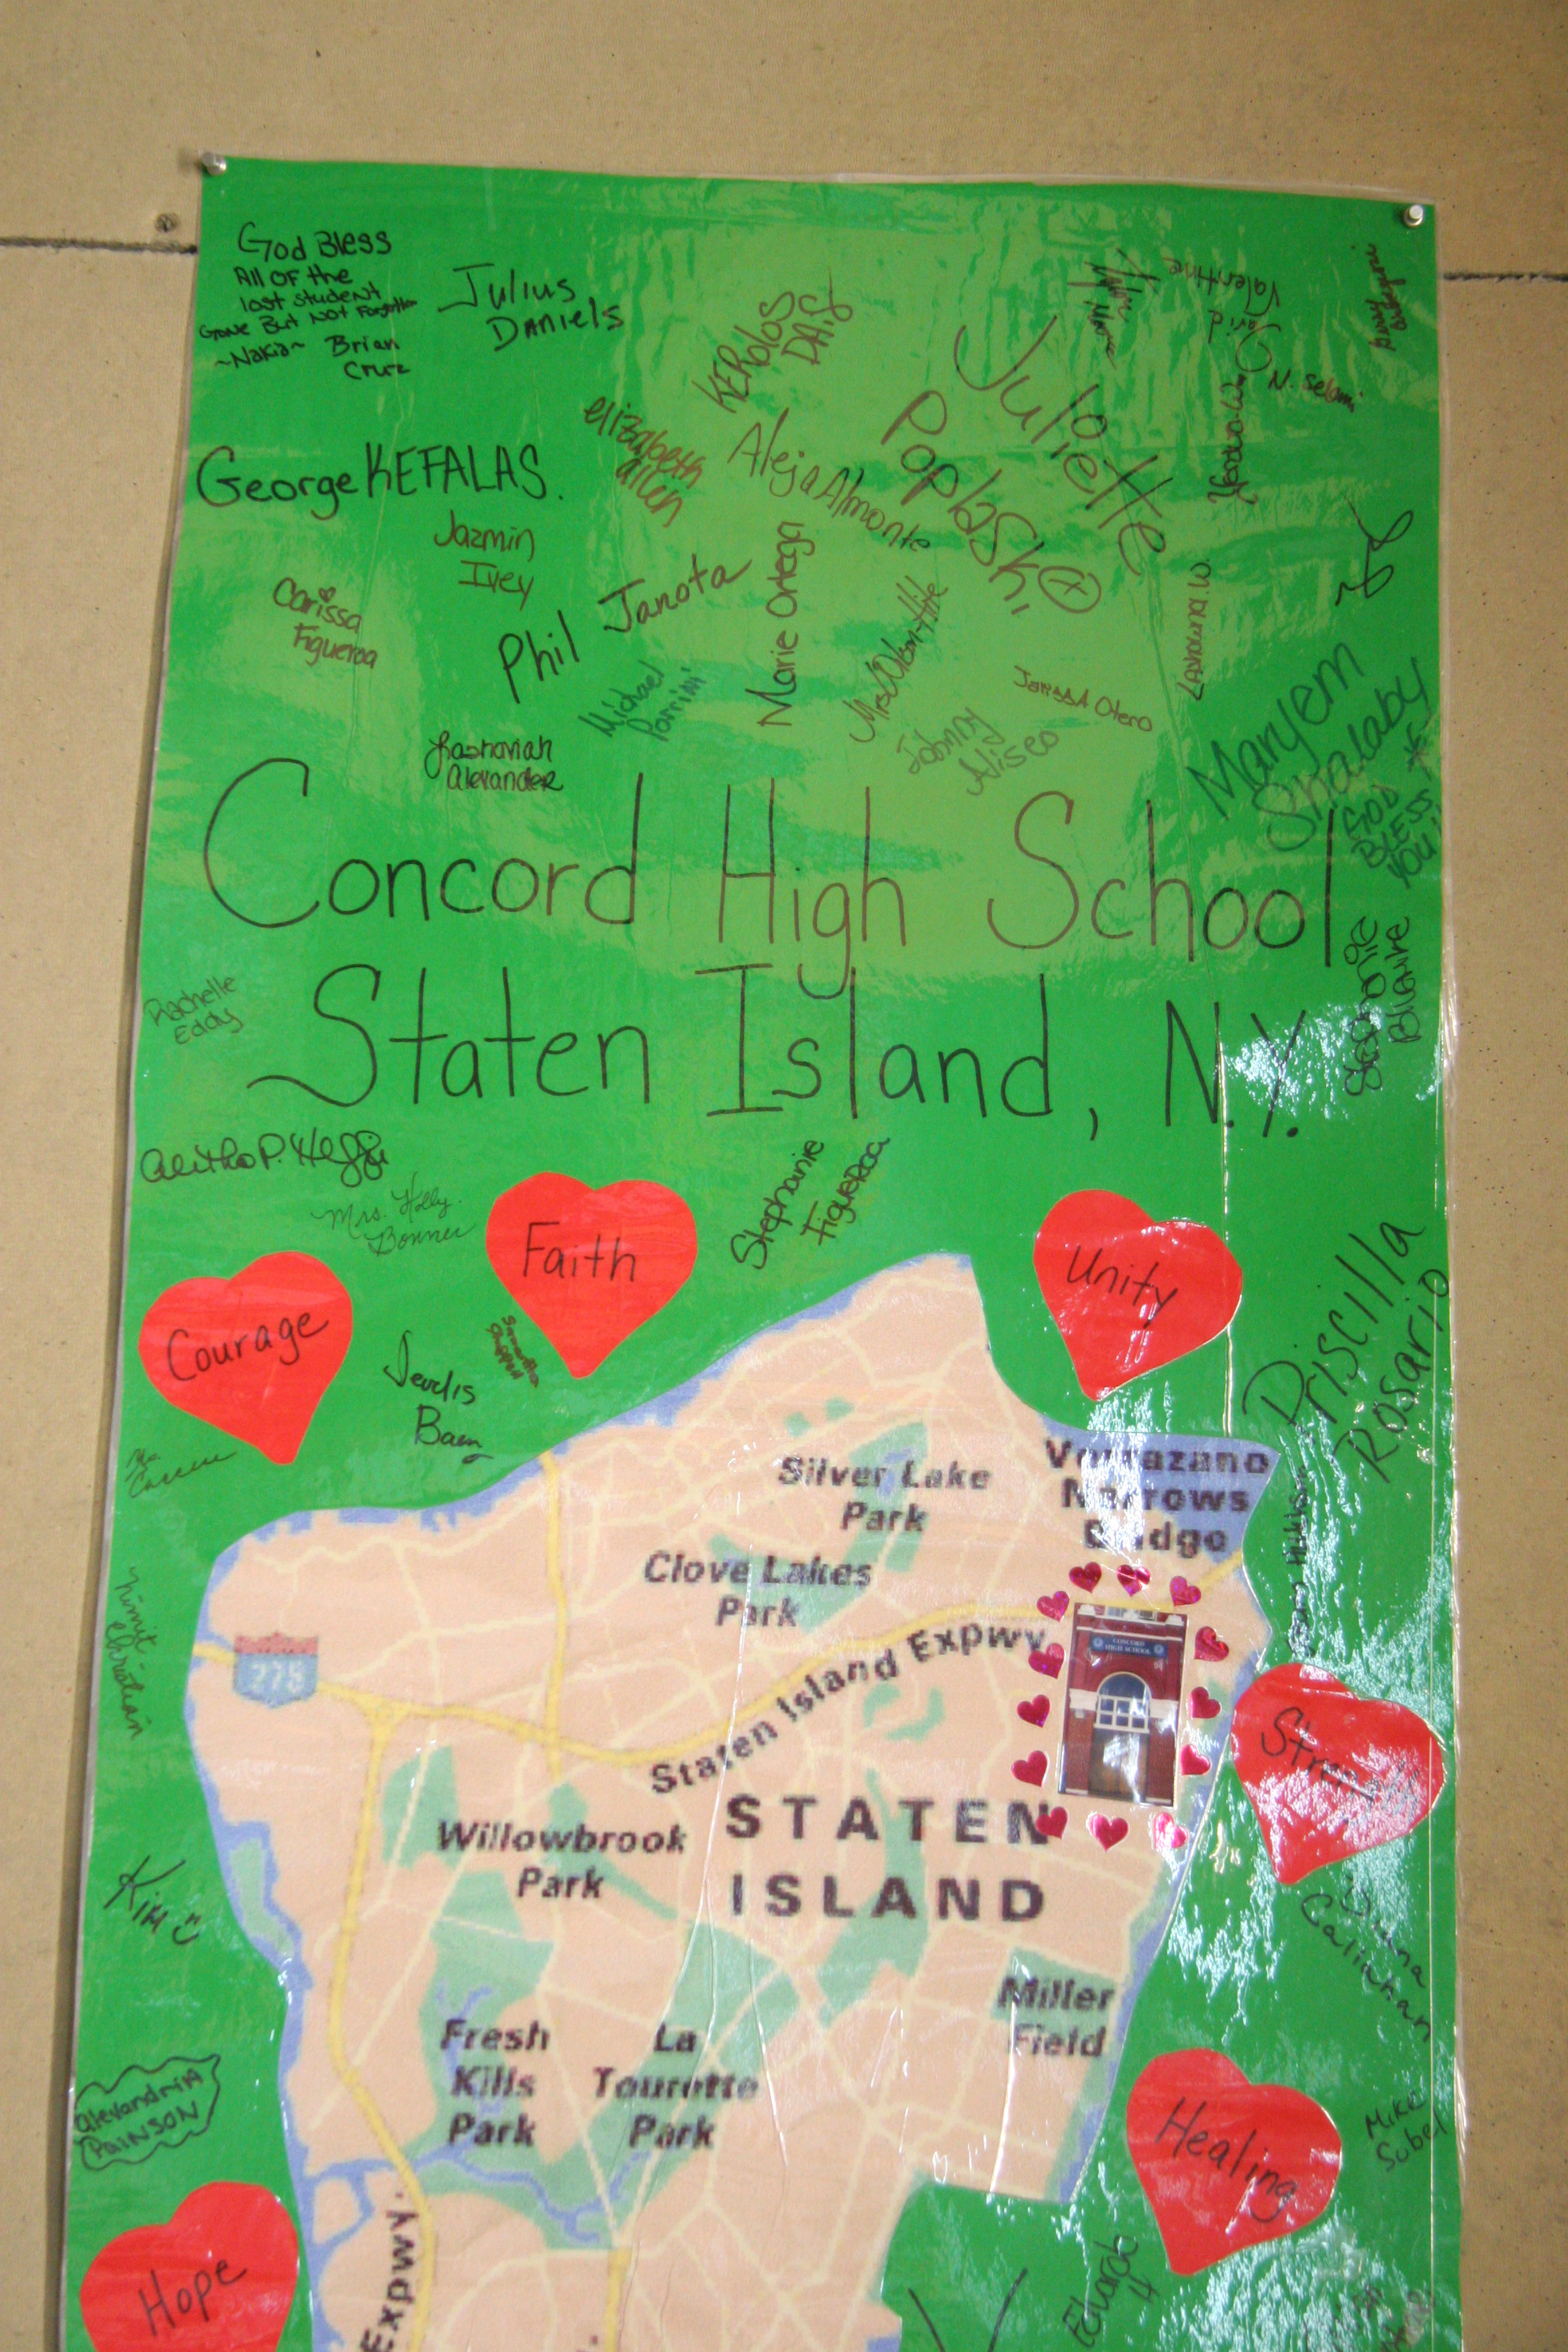 God Bless
All OF the
lost student
Gone But Not Forgotten
~Nakia~ Brian
Cruz
Julius
Daniels
KERolos
DAIS
Juliette
Poplaski
Valentine
N. Selami
George KEFALAS.
elizabeth
allen
Aleja Almonte
Jazmin
Ivey
Carissa
Figueroa
Phil Janota
Marie Ortega
Michael
Johnny
Aliseo
Otero
Maryem
Shalaby
GOD
BLESS
YOU!
Alexander
Concord High School
Staten Island, N.Y.
Rachelle
Eddy
Stephanie
Mrs. Holly
Bonner
Stephanie
Figueroa
Priscilla
Rosario
Courage
Faith
Unity
Baez
Silver Lake
Park
Verrazano
Narrows
Bridge
Clove Lakes
Park
Staten Island Expwy
278
CONCORD
HIGH SCHOOL
Christian
Strength
STATEN
ISLAND
Willowbrook
Park
Kim
Callahan
Miller
Field
Fresh
Kills
Park
La
Tourette
Park
Alexandria
PAINSON
Healing
Mike
Sobel
Hope
Expwy.
Edward